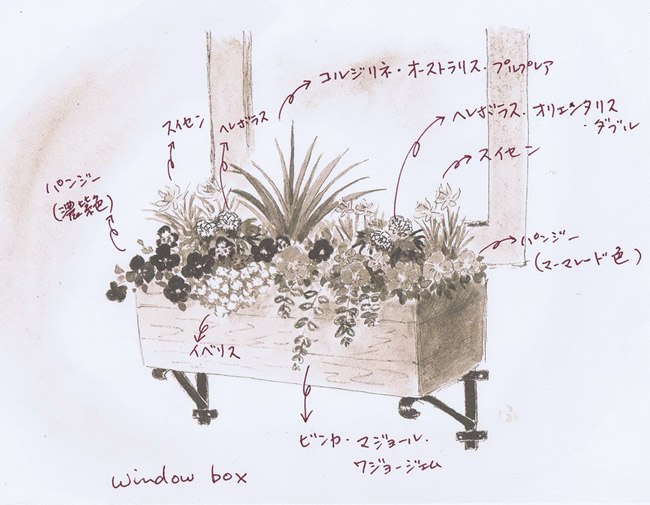 コルジリネ・オーストラリス・プルプレア
スイセン
ヘレボラス
ヘレボラス・オリエンタリス
・ダブル
スイセン
パンジー
(濃紫色)
パンジー
(マーマレード色)
イベリス
ビンカ・マジョール・
ワジョージェム
window box